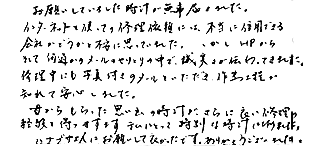 お願いしていました時計が無事届きました。
インターネットを使っての修理依頼には、本当に信用できる
会社かどうか不安に思っていました。しかしHPから
そして何回かのメールのやりとりの中で、誠実さが伝わってきました。
修理中にも写真付きのメールをいただき、作業工程が
知れて安心しました。
母からもらった思い出の時計が、さらに良い修理の
経験を持つ 私にとって特別な時計になりました。
にお願いして良かったです。ありがとうございました。